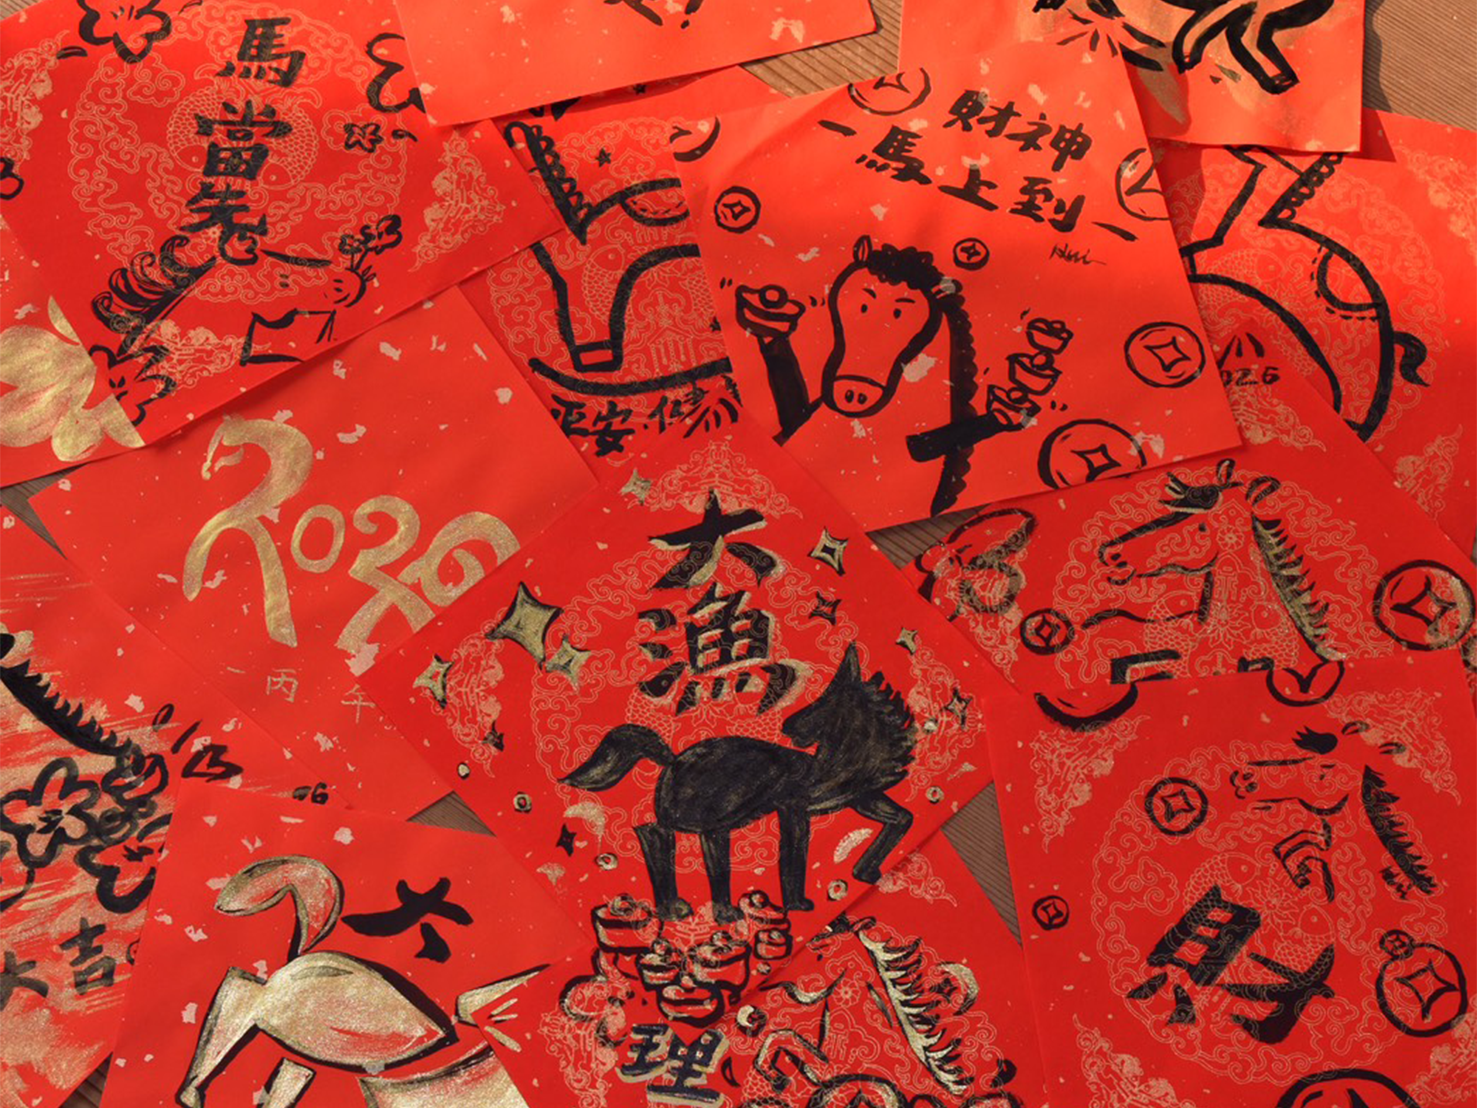 馬
當
先
財神
一馬上到一
平安·健
2026
丙午
大
漁
大吉
大
理
財